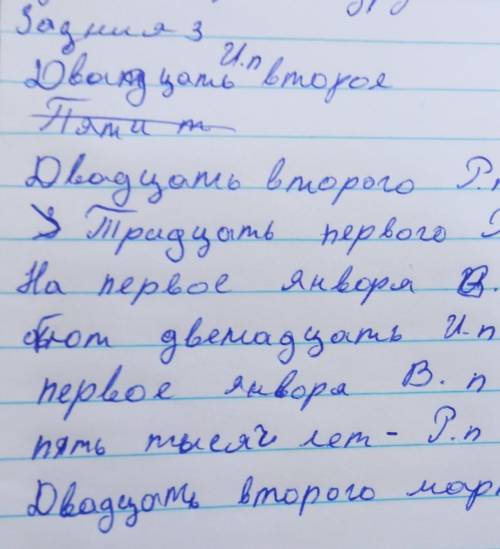 Задния 3
Двандцать И.п второя
Пяти т
Двадцать второго Р.п
Тридцать первого
На первое январа В.
бют двенадцать И.п
первое январа В.п
пять тысяч лет - Р.п
Двадцать второго мар